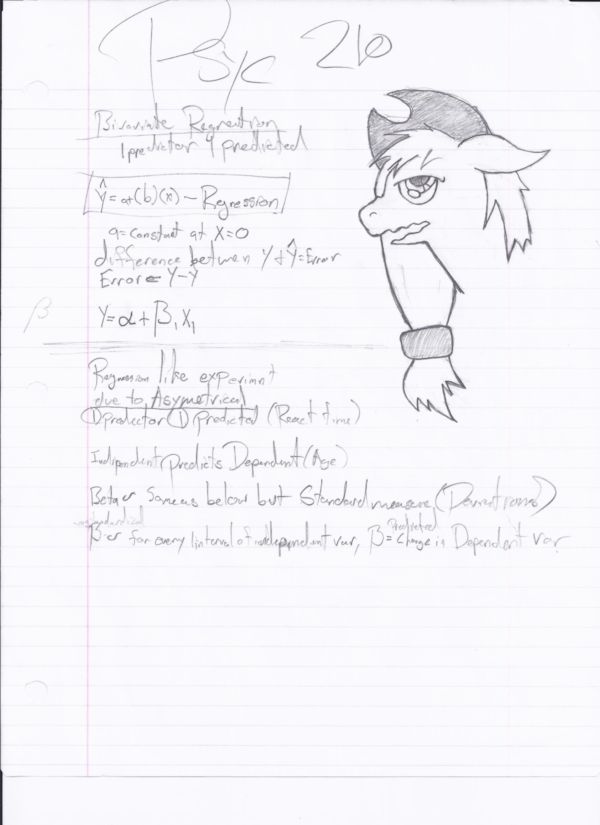 Psyc 210
Bivariate Regression
1 predictor 1 predicted
Ŷ = a+(b)(x) - Regression
a = constant at X=0
difference between Y + Ŷ = Error
Error = Y-Ŷ
β
Y = α + β₁X₁
Regression like experiment
due to Asymetrical
① predictor ① predicted (React time)
Independent predicts Dependent (Age)
Beta er Same as below but Standard measure,
unstandardized
β er for every 1 interval of independent var, β = Predicted Change in Dependent var